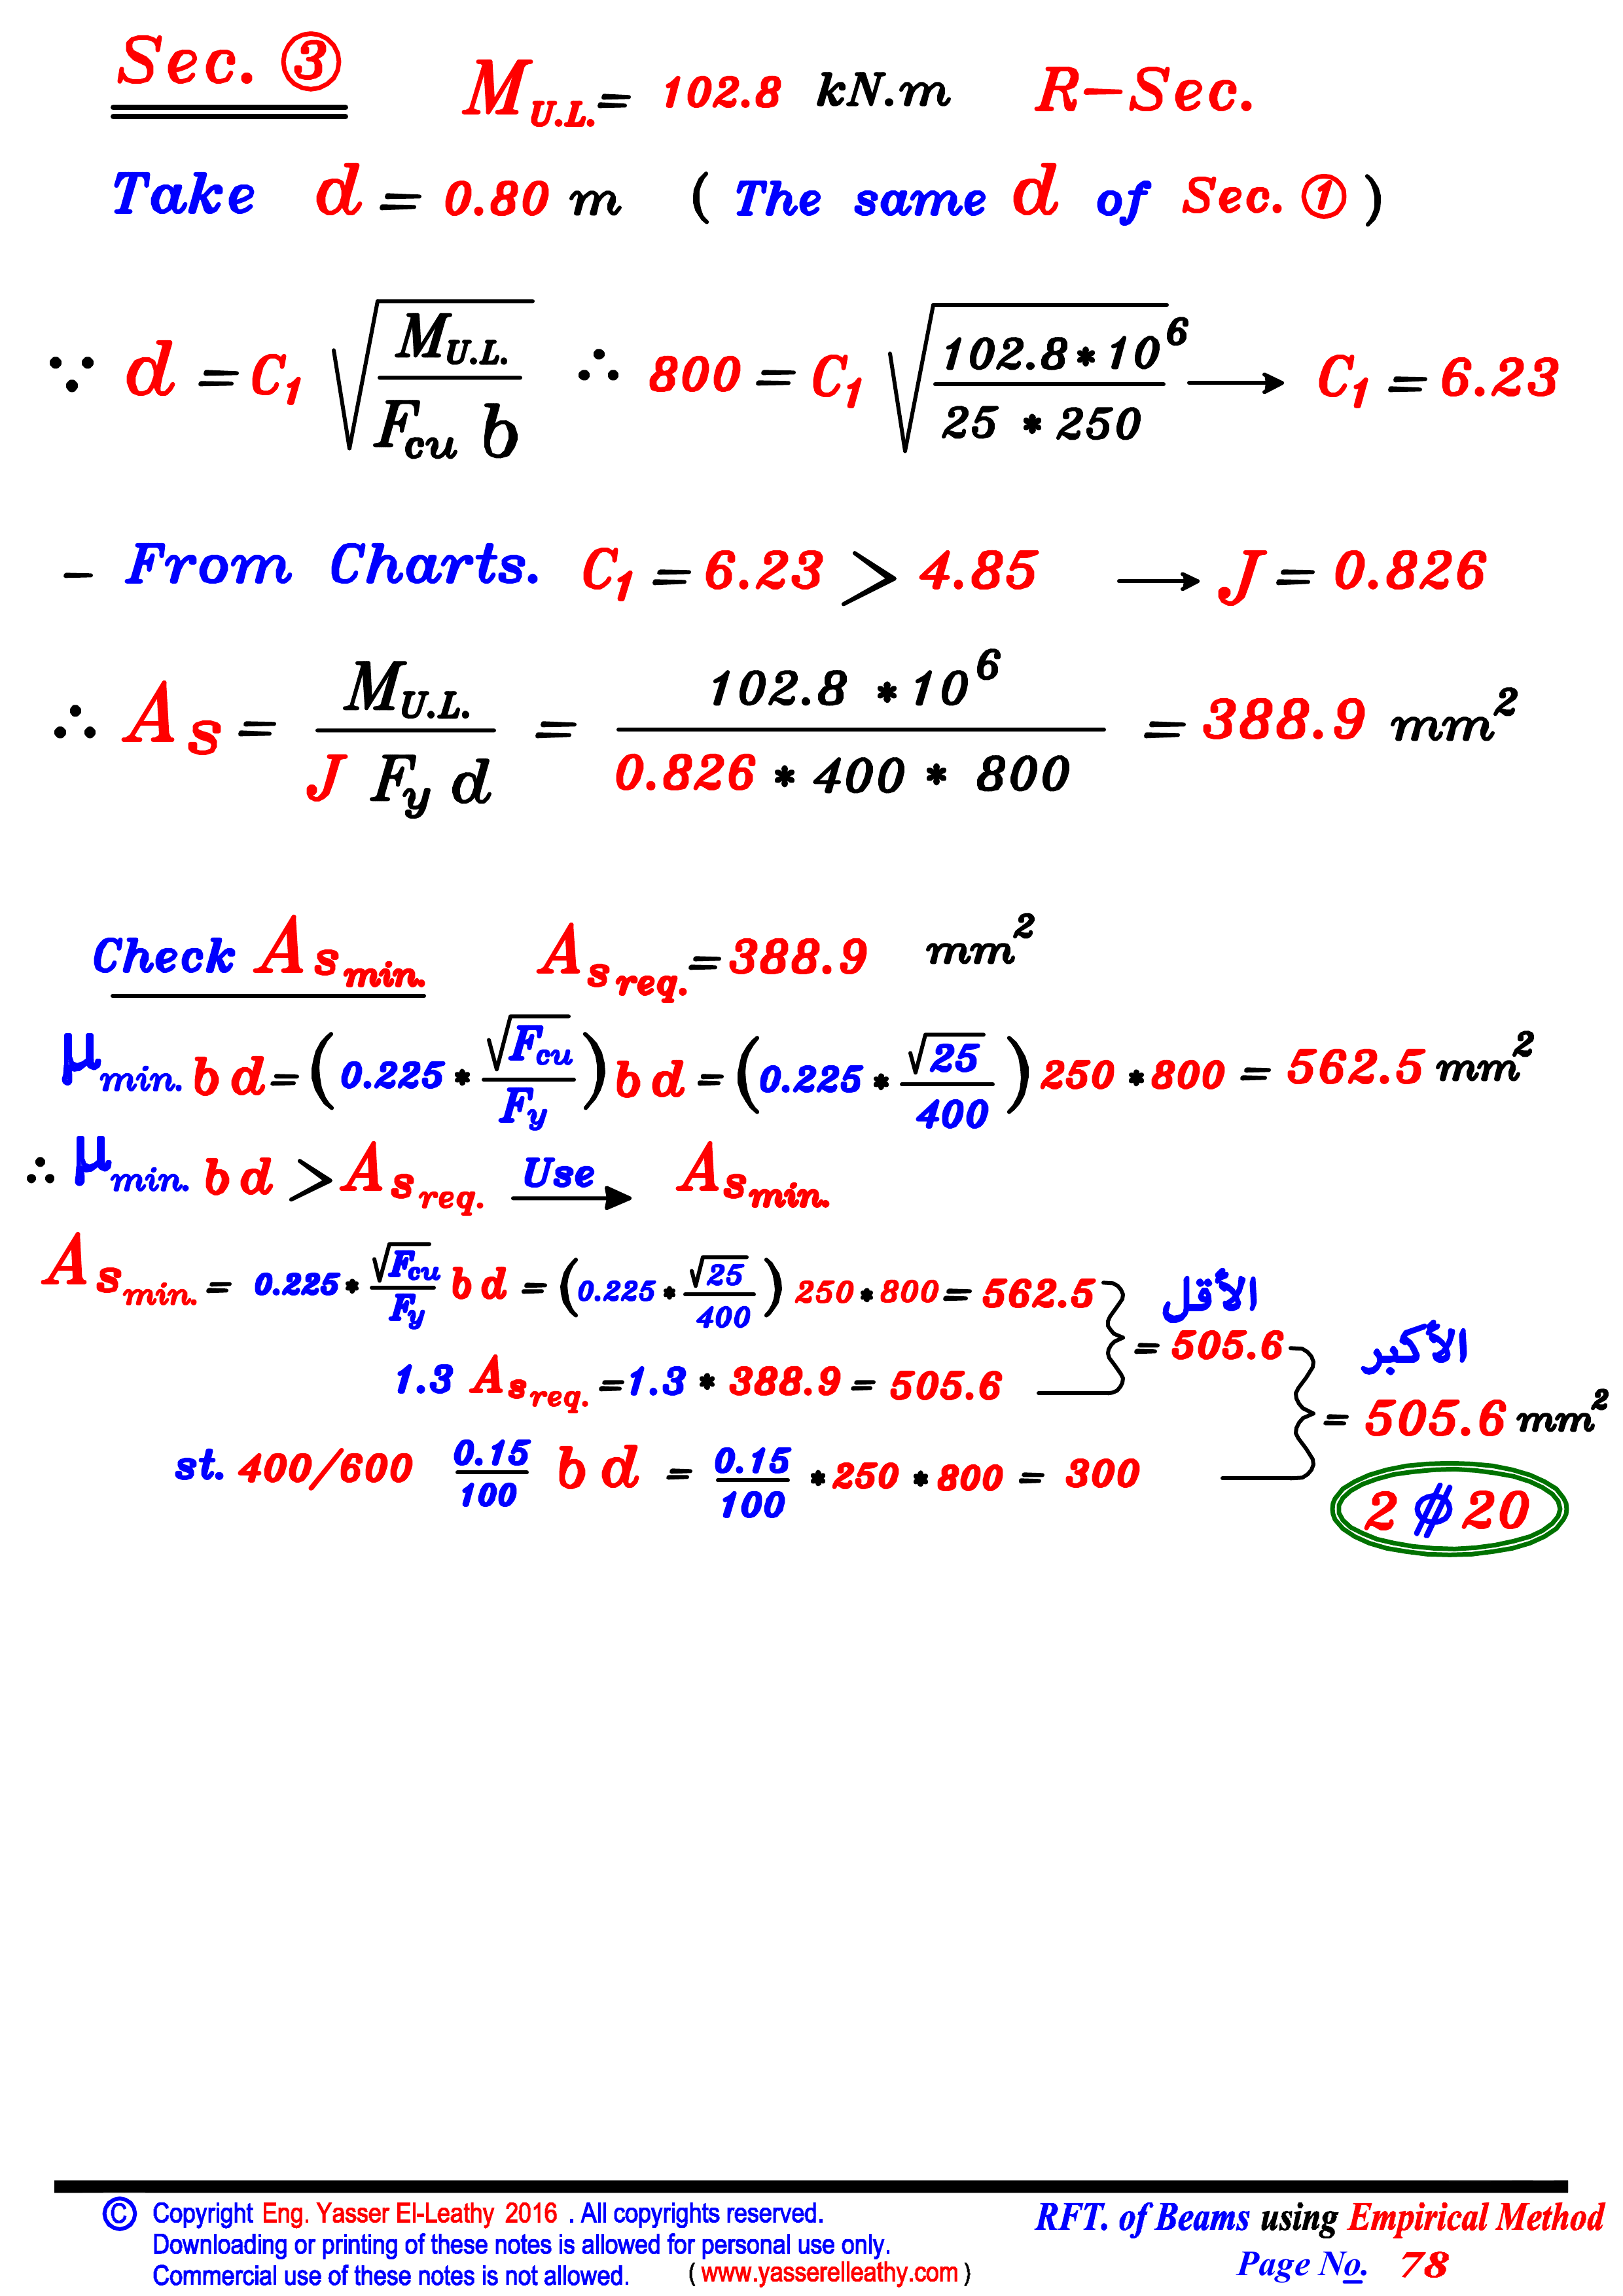 Sec. ③ M U.L. = 102.8 kN.m R-Sec.
Take d = 0.80 m ( The same d of Sec. ① )
∵ d = C1 √(M U.L. / Fcu b) ∴ 800 = C1 √(102.8 * 10^6 / 25 * 250) → C1 = 6.23
- From Charts. C1 = 6.23 > 4.85 → J = 0.826
∴ As = M U.L. / J Fy d = 102.8 * 10^6 / 0.826 * 400 * 800 = 388.9 mm²
Check As min. As req. = 388.9 mm²
μ min. b d = (0.225 * √Fcu / Fy) b d = (0.225 * √25 / 400) 250 * 800 = 562.5 mm²
∴ μ min. b d > As req. Use → As min.
As min. = 0.225 * √Fcu / Fy b d = (0.225 * √25 / 400) 250 * 800 = 562.5 الأقل
= 505.6 الأكبر
1.3 As req. = 1.3 * 388.9 = 505.6
= 505.6 mm²
st. 400/600 0.15/100 b d = 0.15/100 * 250 * 800 = 300
2 ⌀ 20
© Copyright Eng. Yasser El-Leathy 2016 . All copyrights reserved.
Downloading or printing of these notes is allowed for personal use only.
Commercial use of these notes is not allowed. ( www.yasserelleathy.com )
RFT. of Beams using Empirical Method
Page No. 78